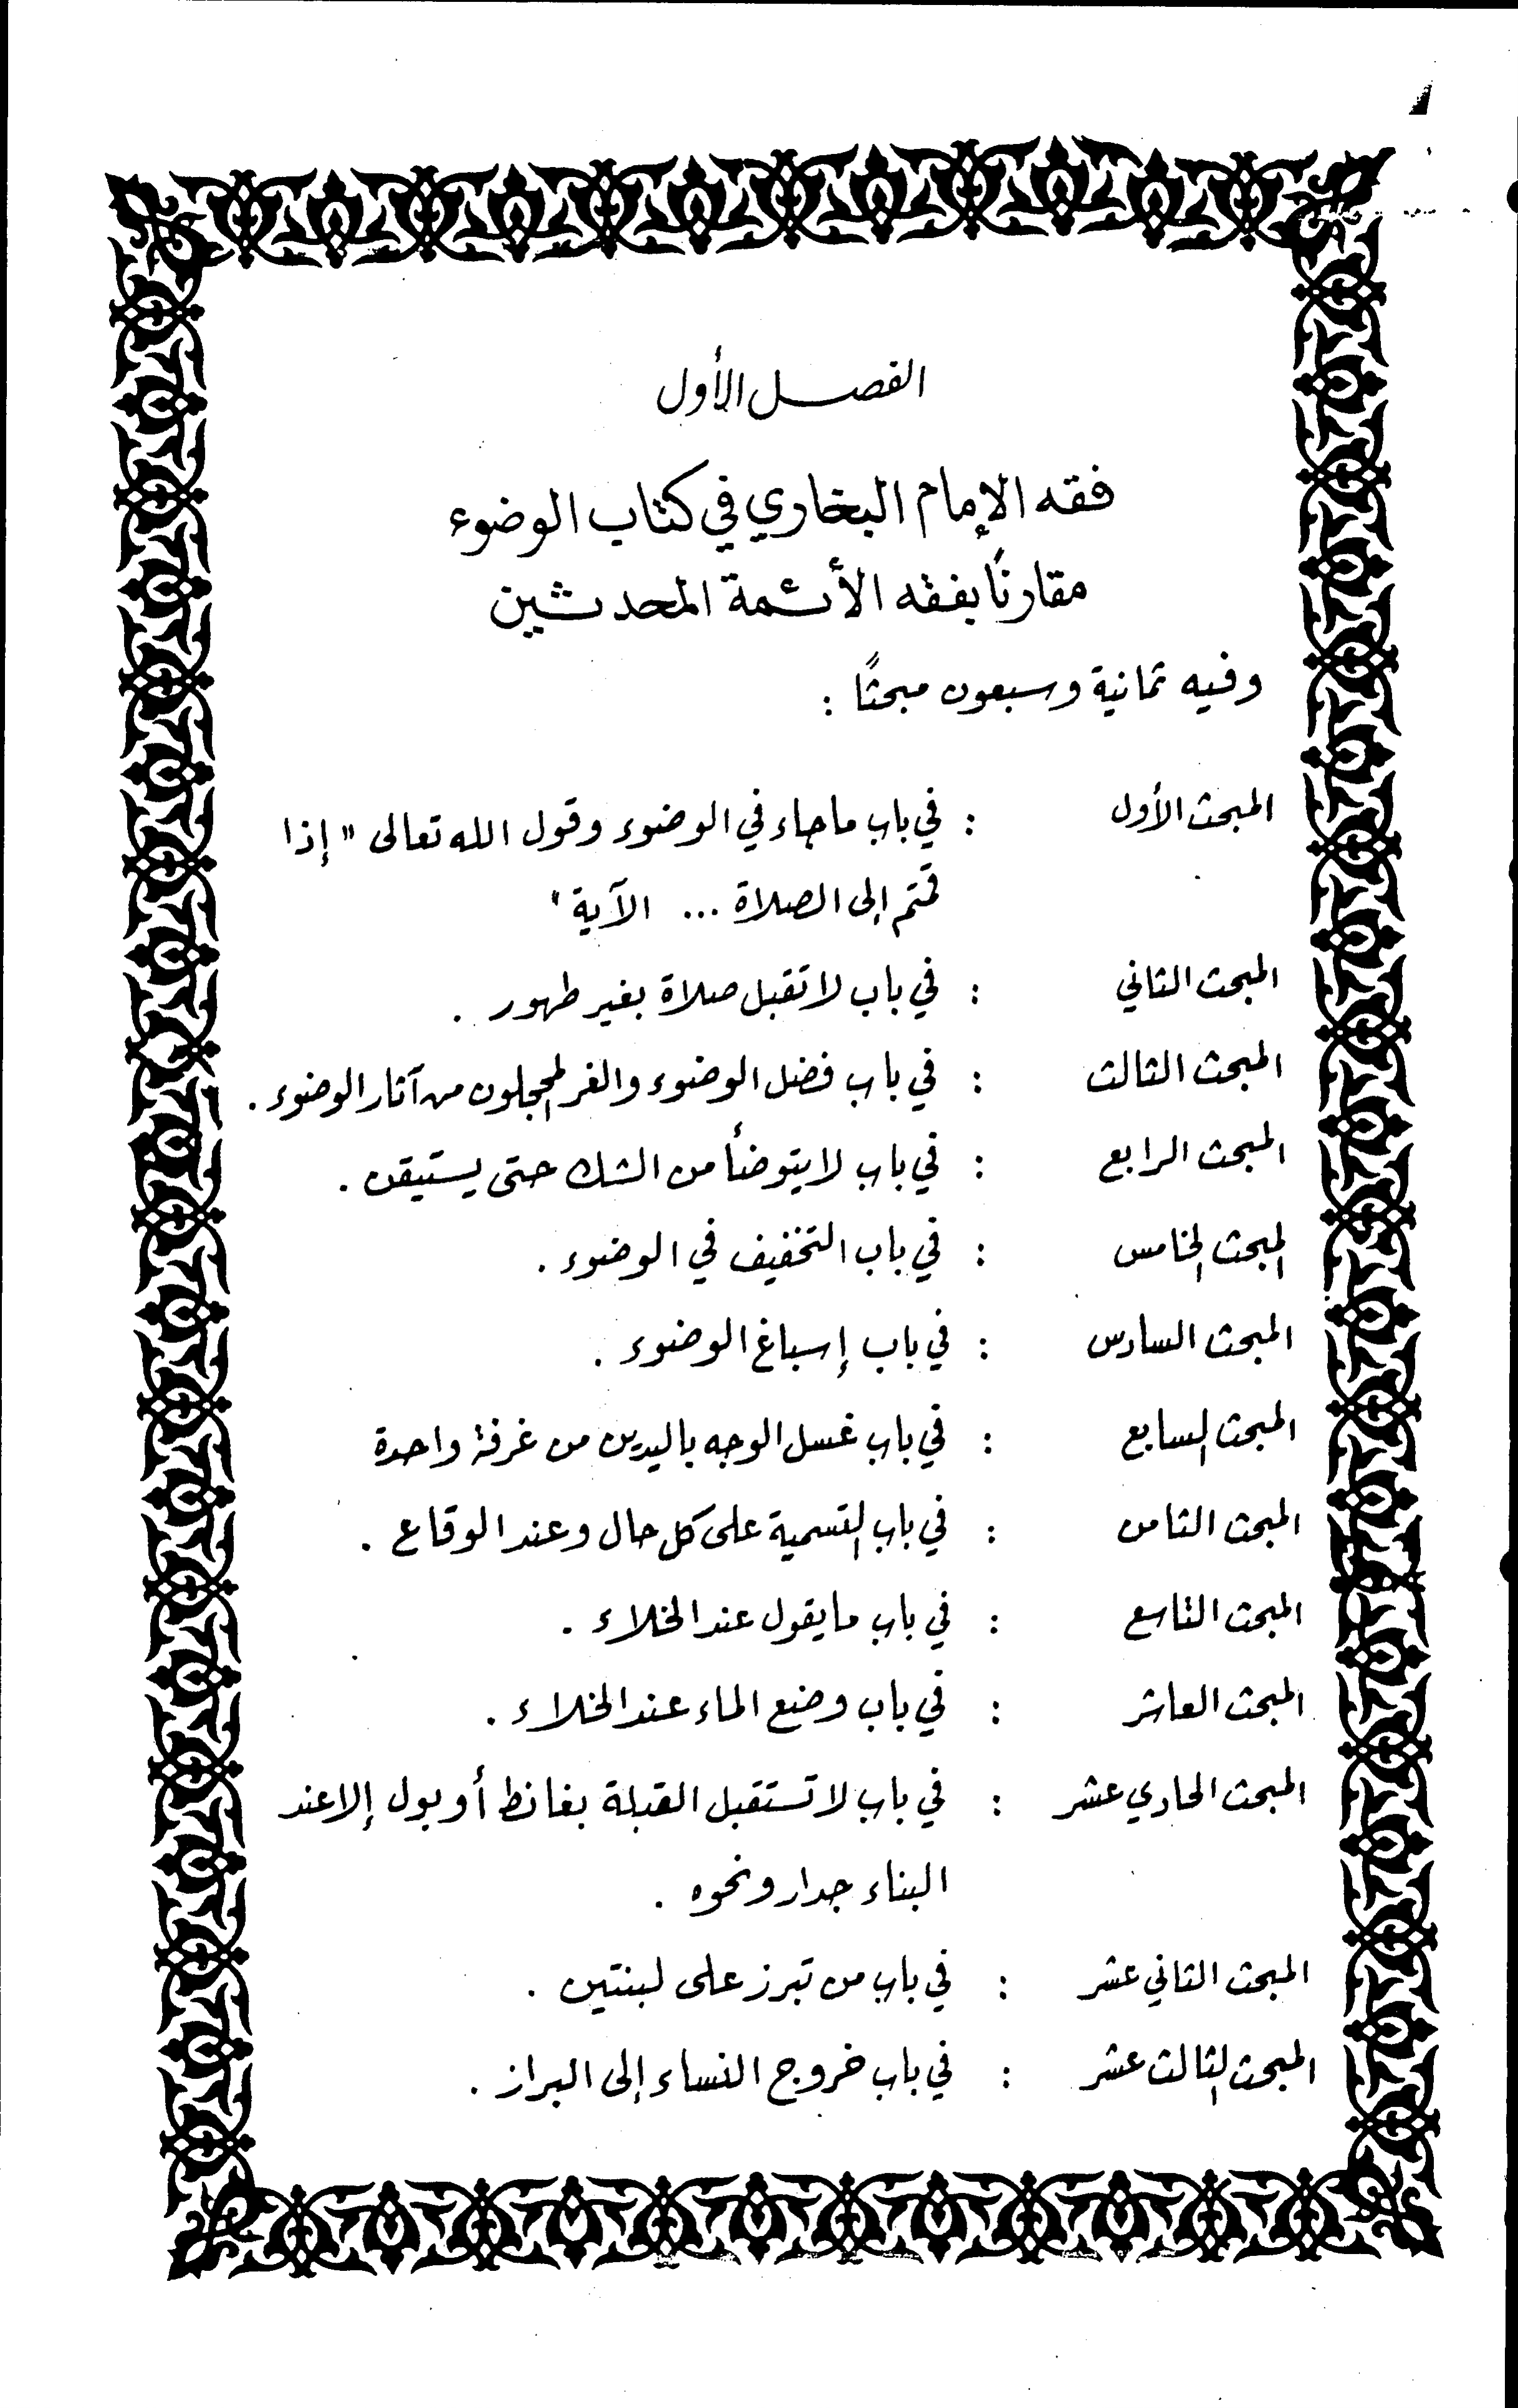 الفصل الأول
فقه الإمام البخاري في كتاب الوضوء
مقارنًا بفقه الأئمة المحدثين
وفيه ثمانية وسبعون مبحثًا :
المبحث الأول : في باب ما جاء في الوضوء وقول الله تعالى " إذا
قمتم إلى الصلاة ... الآية "
المبحث الثاني : في باب لا تقبل صلاة بغير طهور .
المبحث الثالث : في باب فضل الوضوء والغر المحجلون من آثار الوضوء .
المبحث الرابع : في باب لا يتوضأ من الشك حتى يستيقن .
المبحث الخامس : في باب التخفيف في الوضوء .
المبحث السادس : في باب إسباغ الوضوء .
المبحث السابع : في باب غسل الوجه باليدين من غرفة واحدة
المبحث الثامن : في باب التسمية على كل حال وعند الوقاع .
المبحث التاسع : في باب ما يقول عند الخلاء .
المبحث العاشر : في باب وضع الماء عند الخلاء .
المبحث الحادي عشر : في باب لا تستقبل القبلة بغائط أو بول إلا عند
البناء جدار ونحوه .
المبحث الثاني عشر : في باب من تبرز على لبنتين .
المبحث الثالث عشر : في باب خروج النساء إلى البراز .